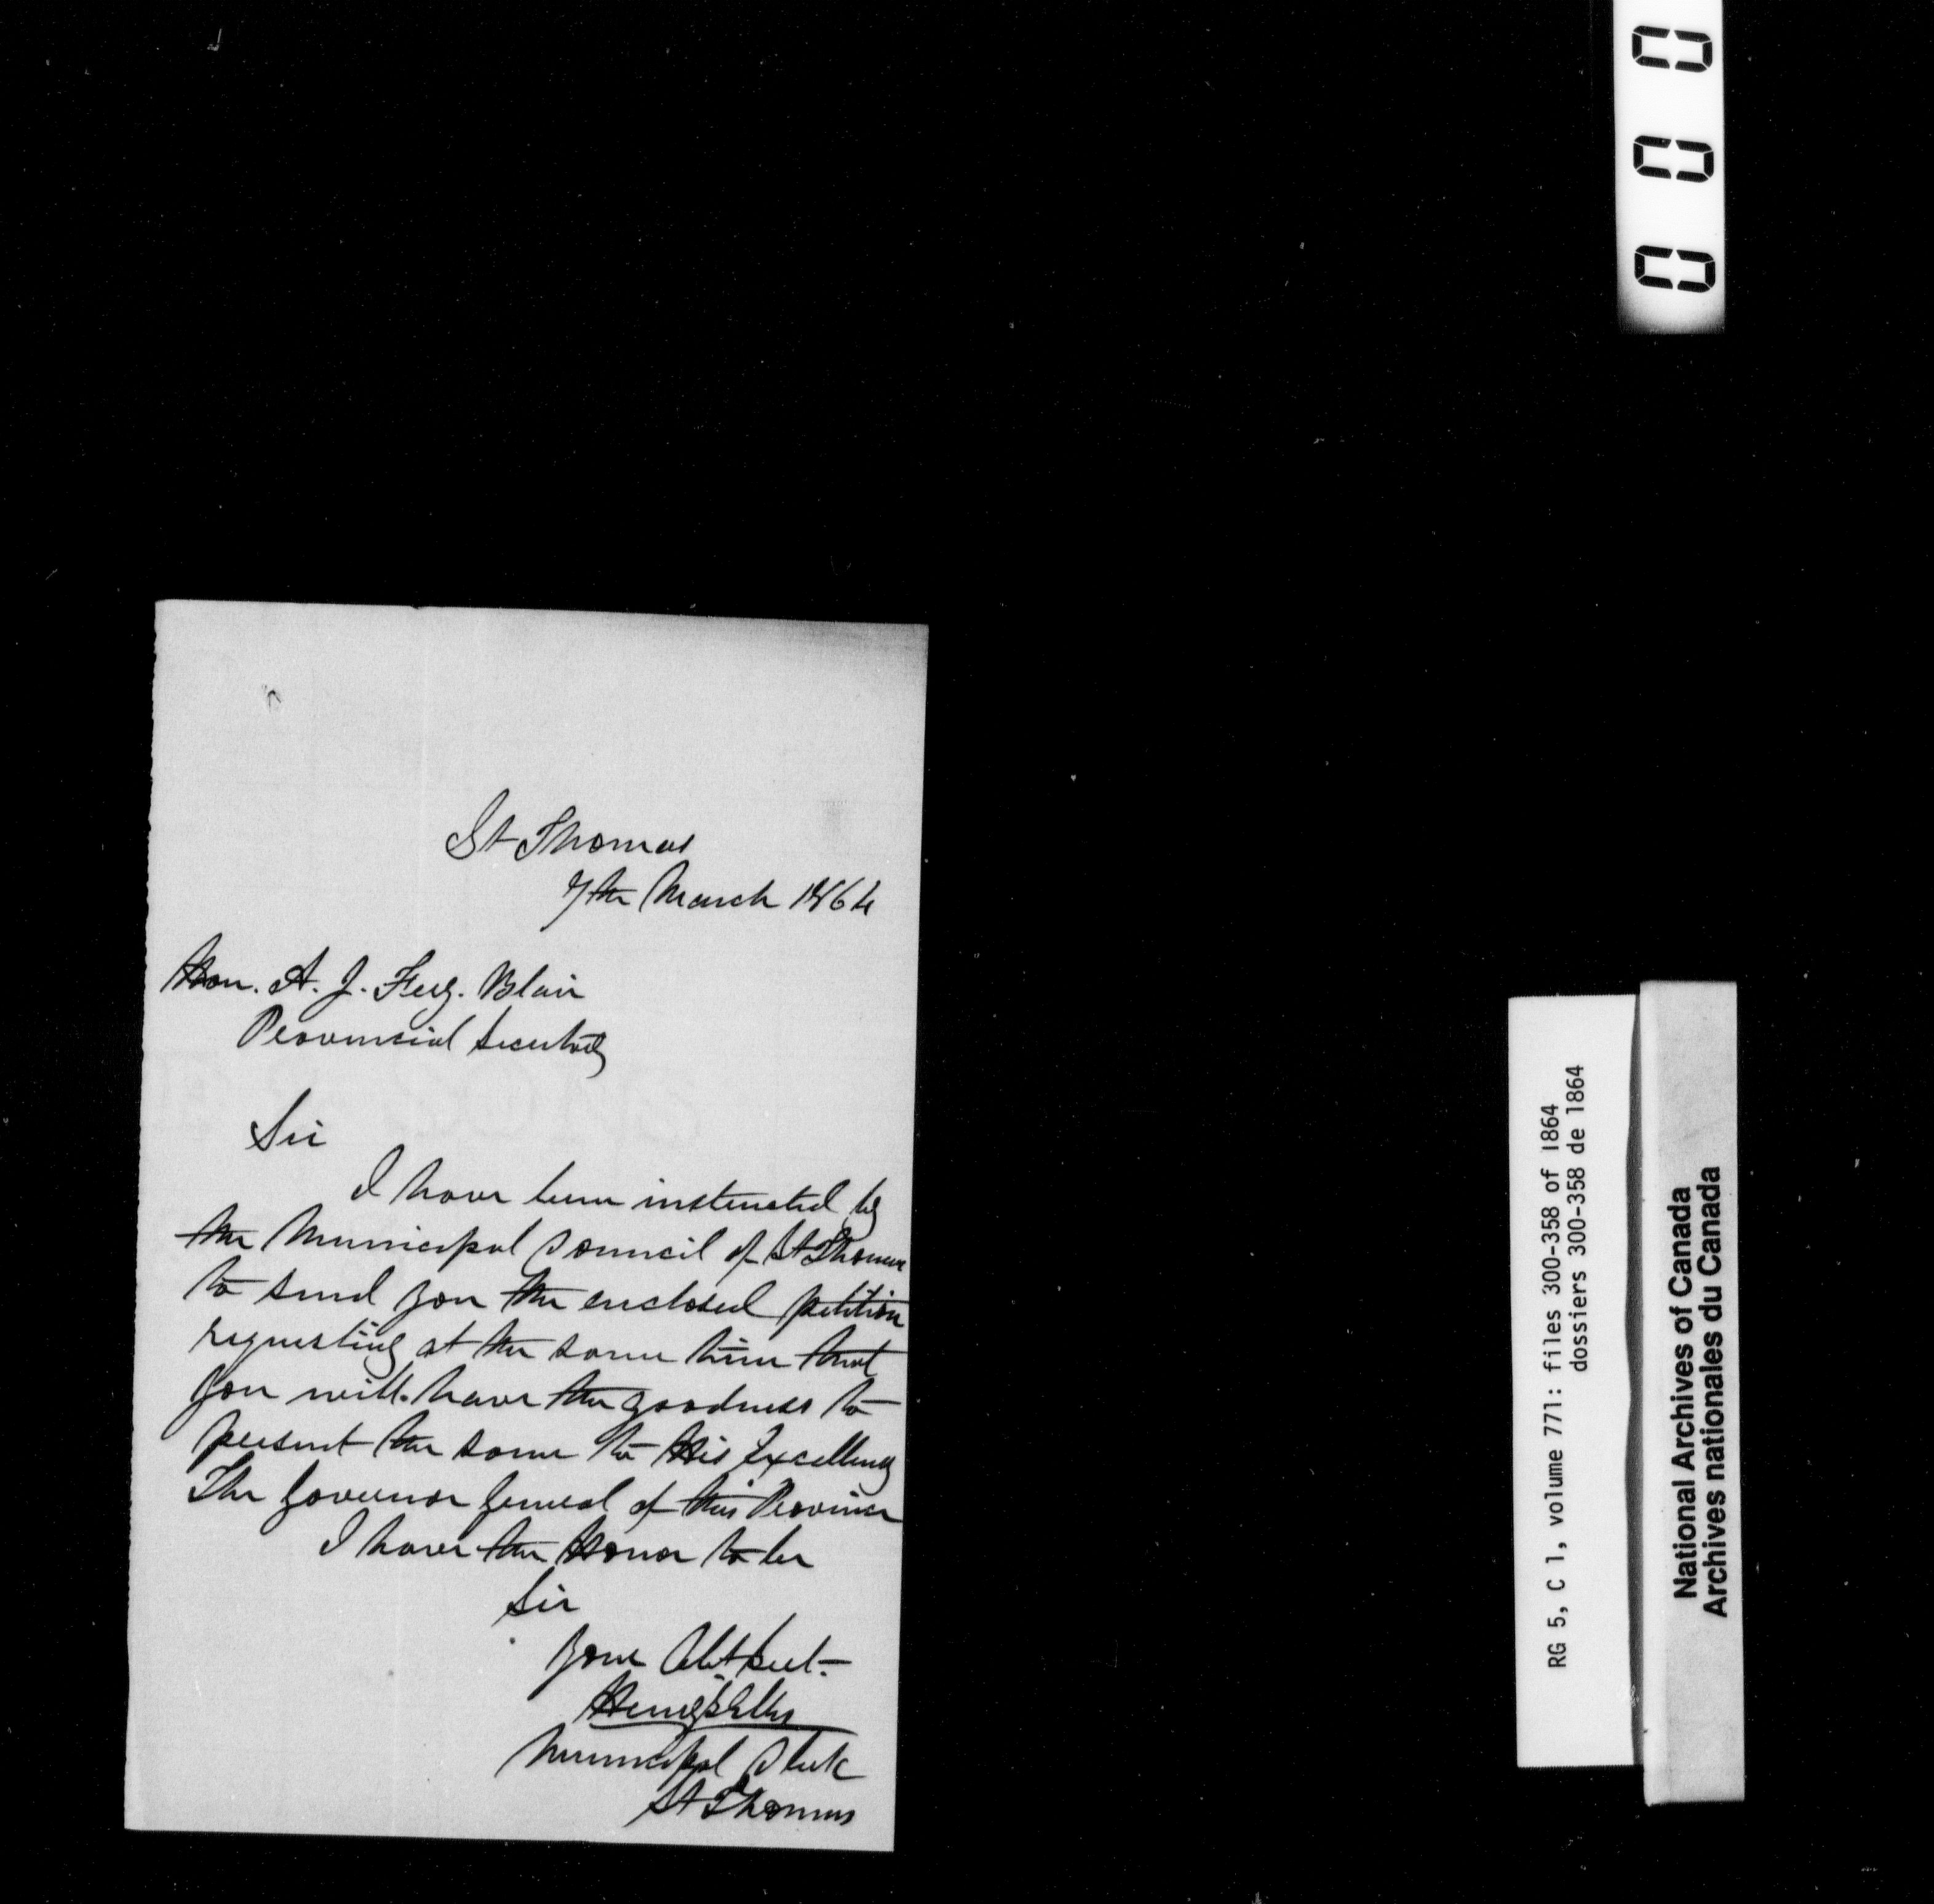 St Thomas
7th March 1864
Hon. A. J. Ferg. Blair
Provincial Secretary
Sir
I have been instructed by
the Municipal Council of St Thomas
to send you the enclosed petition
requesting at the same time that
you will have the goodness to
present the same to His Excellency
The Governor General of this Province
I have the Honor to be
Sir
Your Obt Sert.
Municipal Clerk
St Thomas
000
RG 5, C 1, volume 771: files 300-358 of 1864
dossiers 300-358 de 1864
National Archives of Canada
Archives nationales du Canada